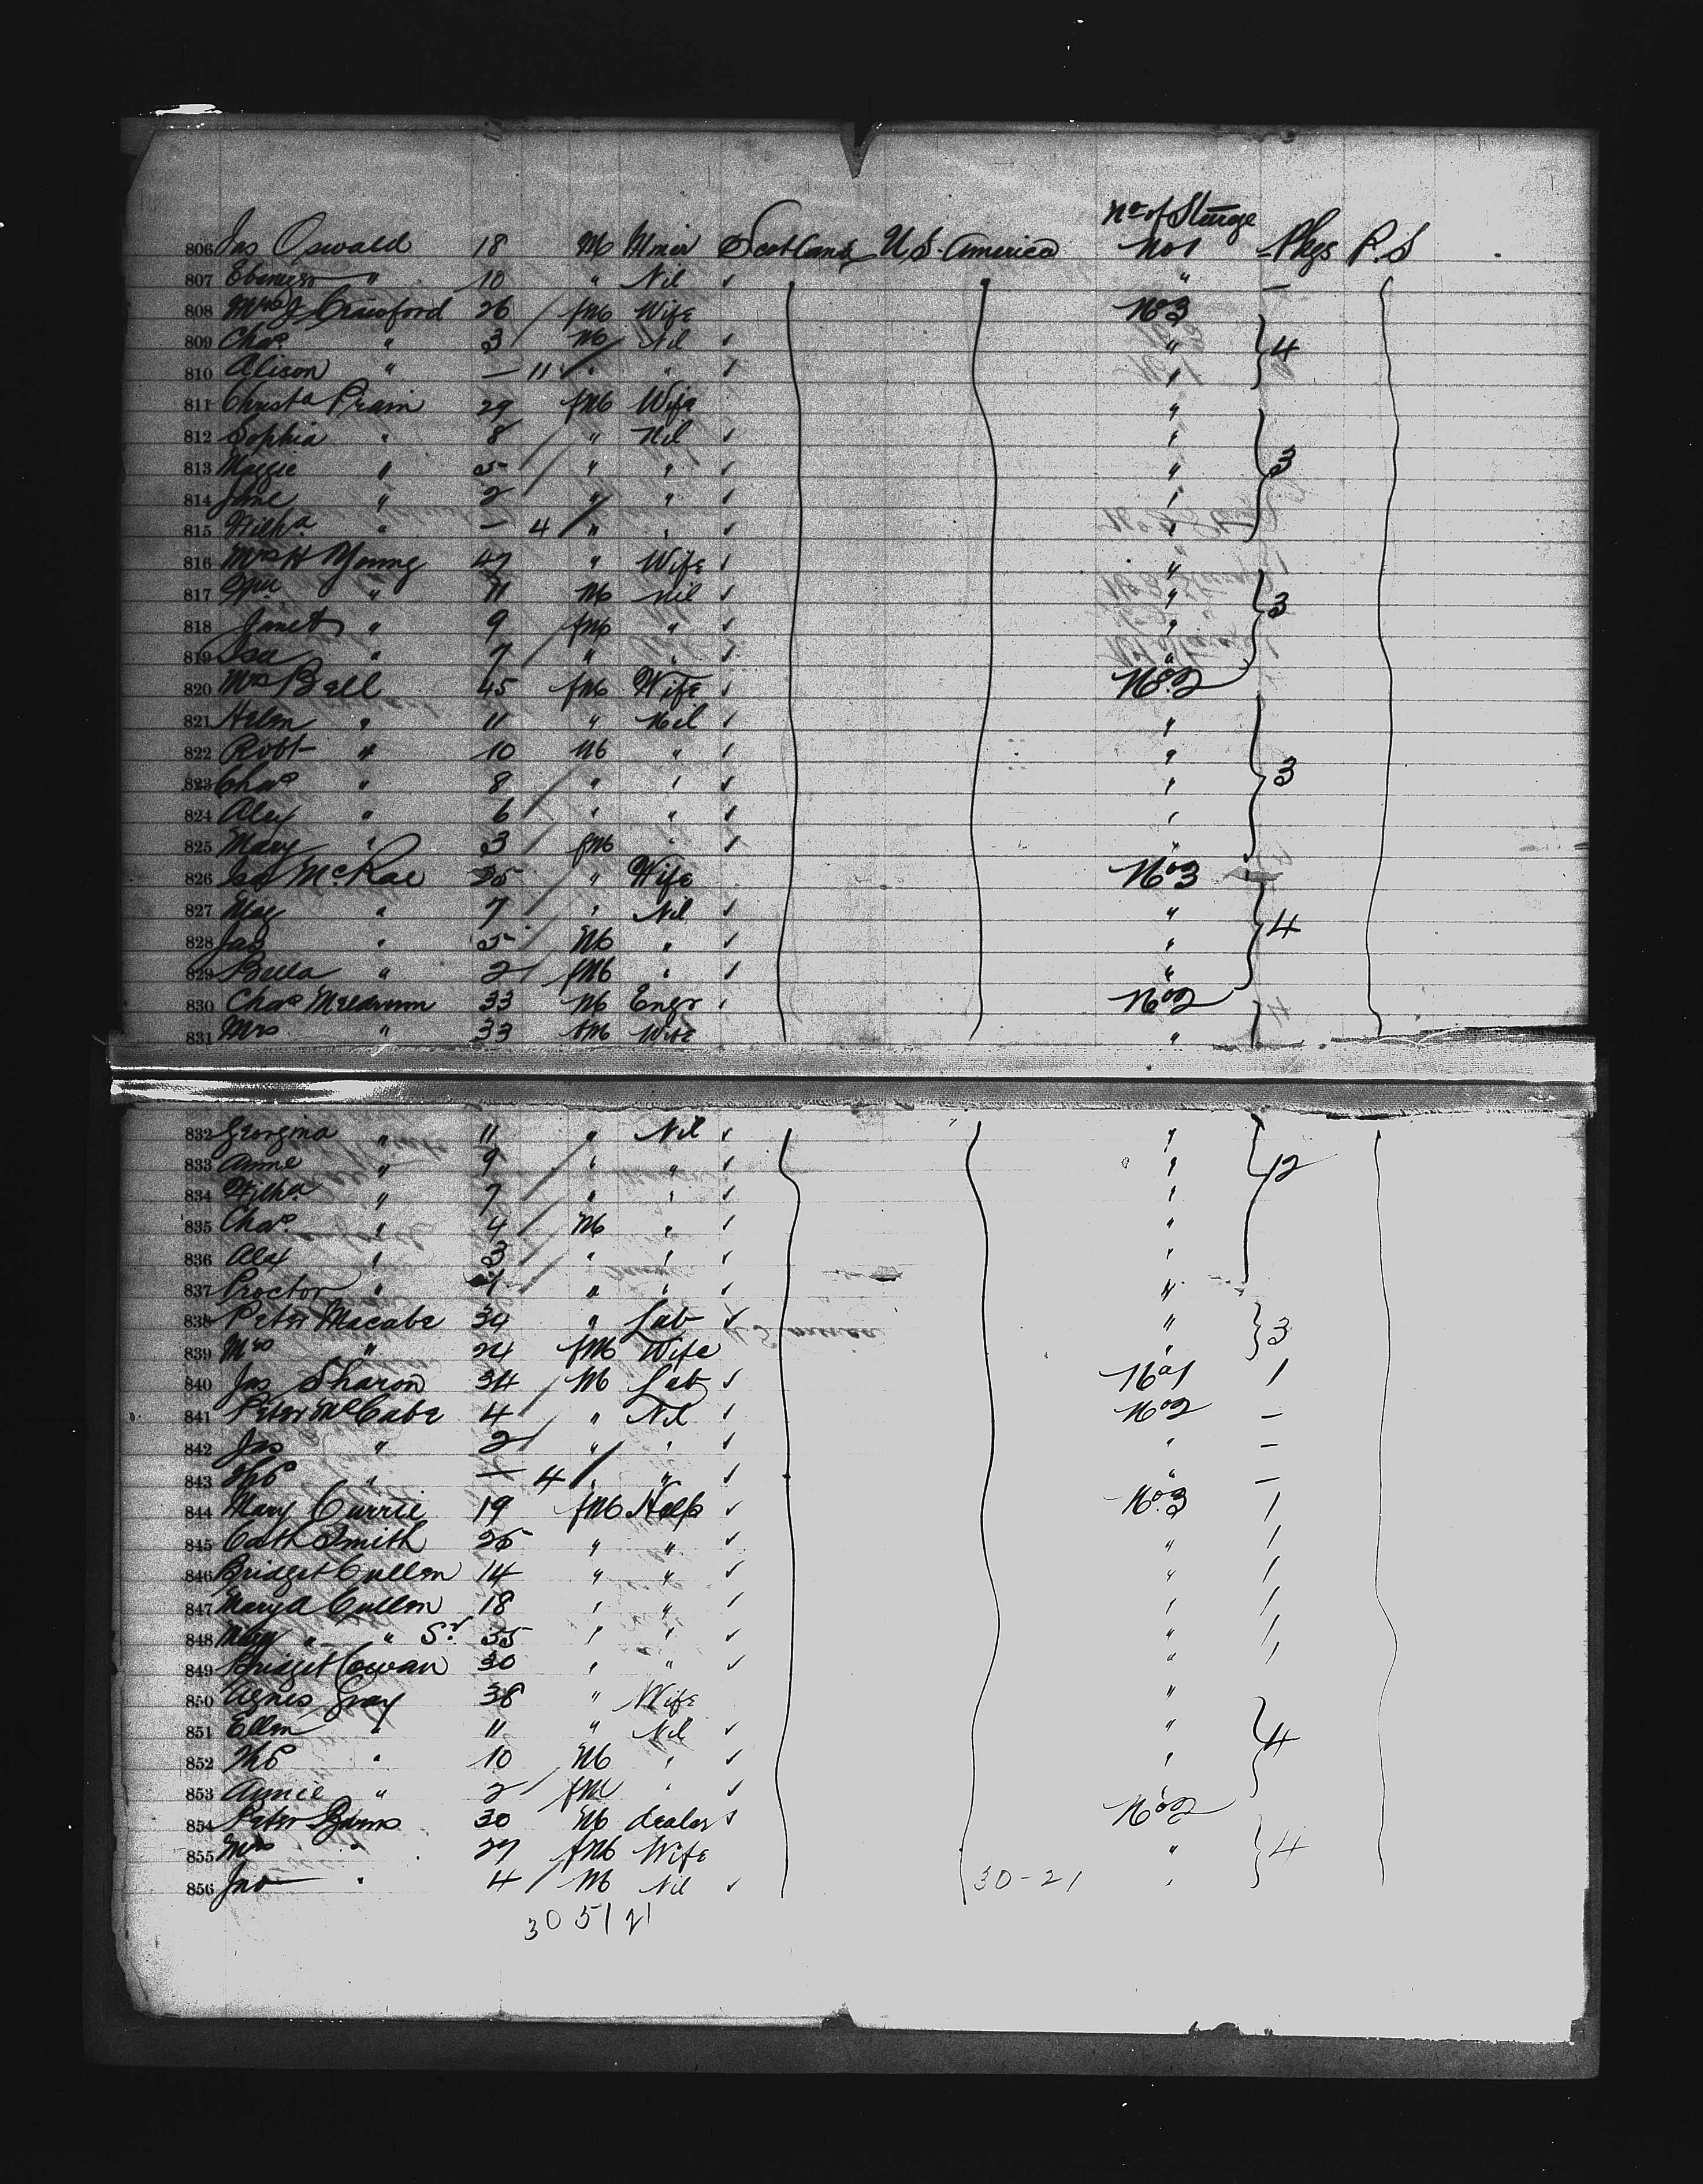 No of Steerage
806 Jas Oswald 18 M Miner Scotland U.S. America No 1 - Pkgs P.S
807 Ebenezer " 10 " Nil ✓ " —
808 Mrs J Crawford 26 / fM Wife No 3
809 Chas " 3 / M Nil ✓ " } 4
810 Alison " — 11 / " " ✓ "
811 Christa Prain 29 fM Wife "
812 Sophia " 8 / " Nil ✓ "
813 Maggie " 5 / " " ✓ " } 3
814 Jane " 2 " " ✓ "
815 Wilha " — 4 / " " ✓ "
816 Mrs H Young 47 " Wife ✓ "
817 " 11 M Nil ✓ " } 3
818 Janet " 9 / fM " ✓ "
819 Isa " 7 / " " ✓ "
820 Mrs Bell 45 fM Wife ✓ No 2
821 Helen " 11 " Nil ✓ "
822 Robt " 10 M " ✓ "
823 Chas " 8 / " " ✓ " } 3
824 Alex " 6 / " " ✓ "
825 Mary " 3 / fM " ✓ "
826 Isa McRae 25 / " Wife No 3
827 Mag " 7 / " Nil ✓ "
828 Jas " 5 / M " ✓ " } 4
829 Bella " 2 / fM " ✓ "
830 Chas Meldrum 33 M Engr ✓ No 2
831 Mrs " 33 fM Wife "
832 Georgina " 11 " Nil ✓ "
833 Annie " 9 / " " ✓ " } 12
834 Wilha " 7 / " " ✓ "
835 Chas " 4 / M " ✓ "
836 Alex " 3 / " " ✓ "
837 Proctor " 1 / " " ✓ "
838 Peter Macabe 34 " Lab ✓ " } 3
839 Mrs " 24 fM Wife "
840 Jas Sharon 34 / M Lab ✓ No 1 1
841 Peter McCabe 4 / " Nil ✓ No 2 —
842 Jas " 2 / " " ✓ " —
843 Thos " — 4 / " " ✓ " —
844 Mary Currie 19 fM Help ✓ No 3 1
845 Cath Smith 26 " " ✓ " 1
846 Bridget Cullen 14 " " ✓ " 1
847 Mary A Cullen 18 " " ✓ " 1
848 Mary " " Sr 35 " " ✓ " 1
849 Bridget Cowan 30 " " ✓ " 1
850 Agnes Gray 38 " Wife "
851 Ellen " 11 " Nil ✓ " } 4
852 Thos " 10 M " ✓ "
853 Annie " 2 / fM " ✓ "
854 Peter Burns 30 M dealer ✓ No 2
855 Mrs " 27 fM Wife " } 4
856 Jno " 4 / M Nil ✓ 30-21 "
30 51 21